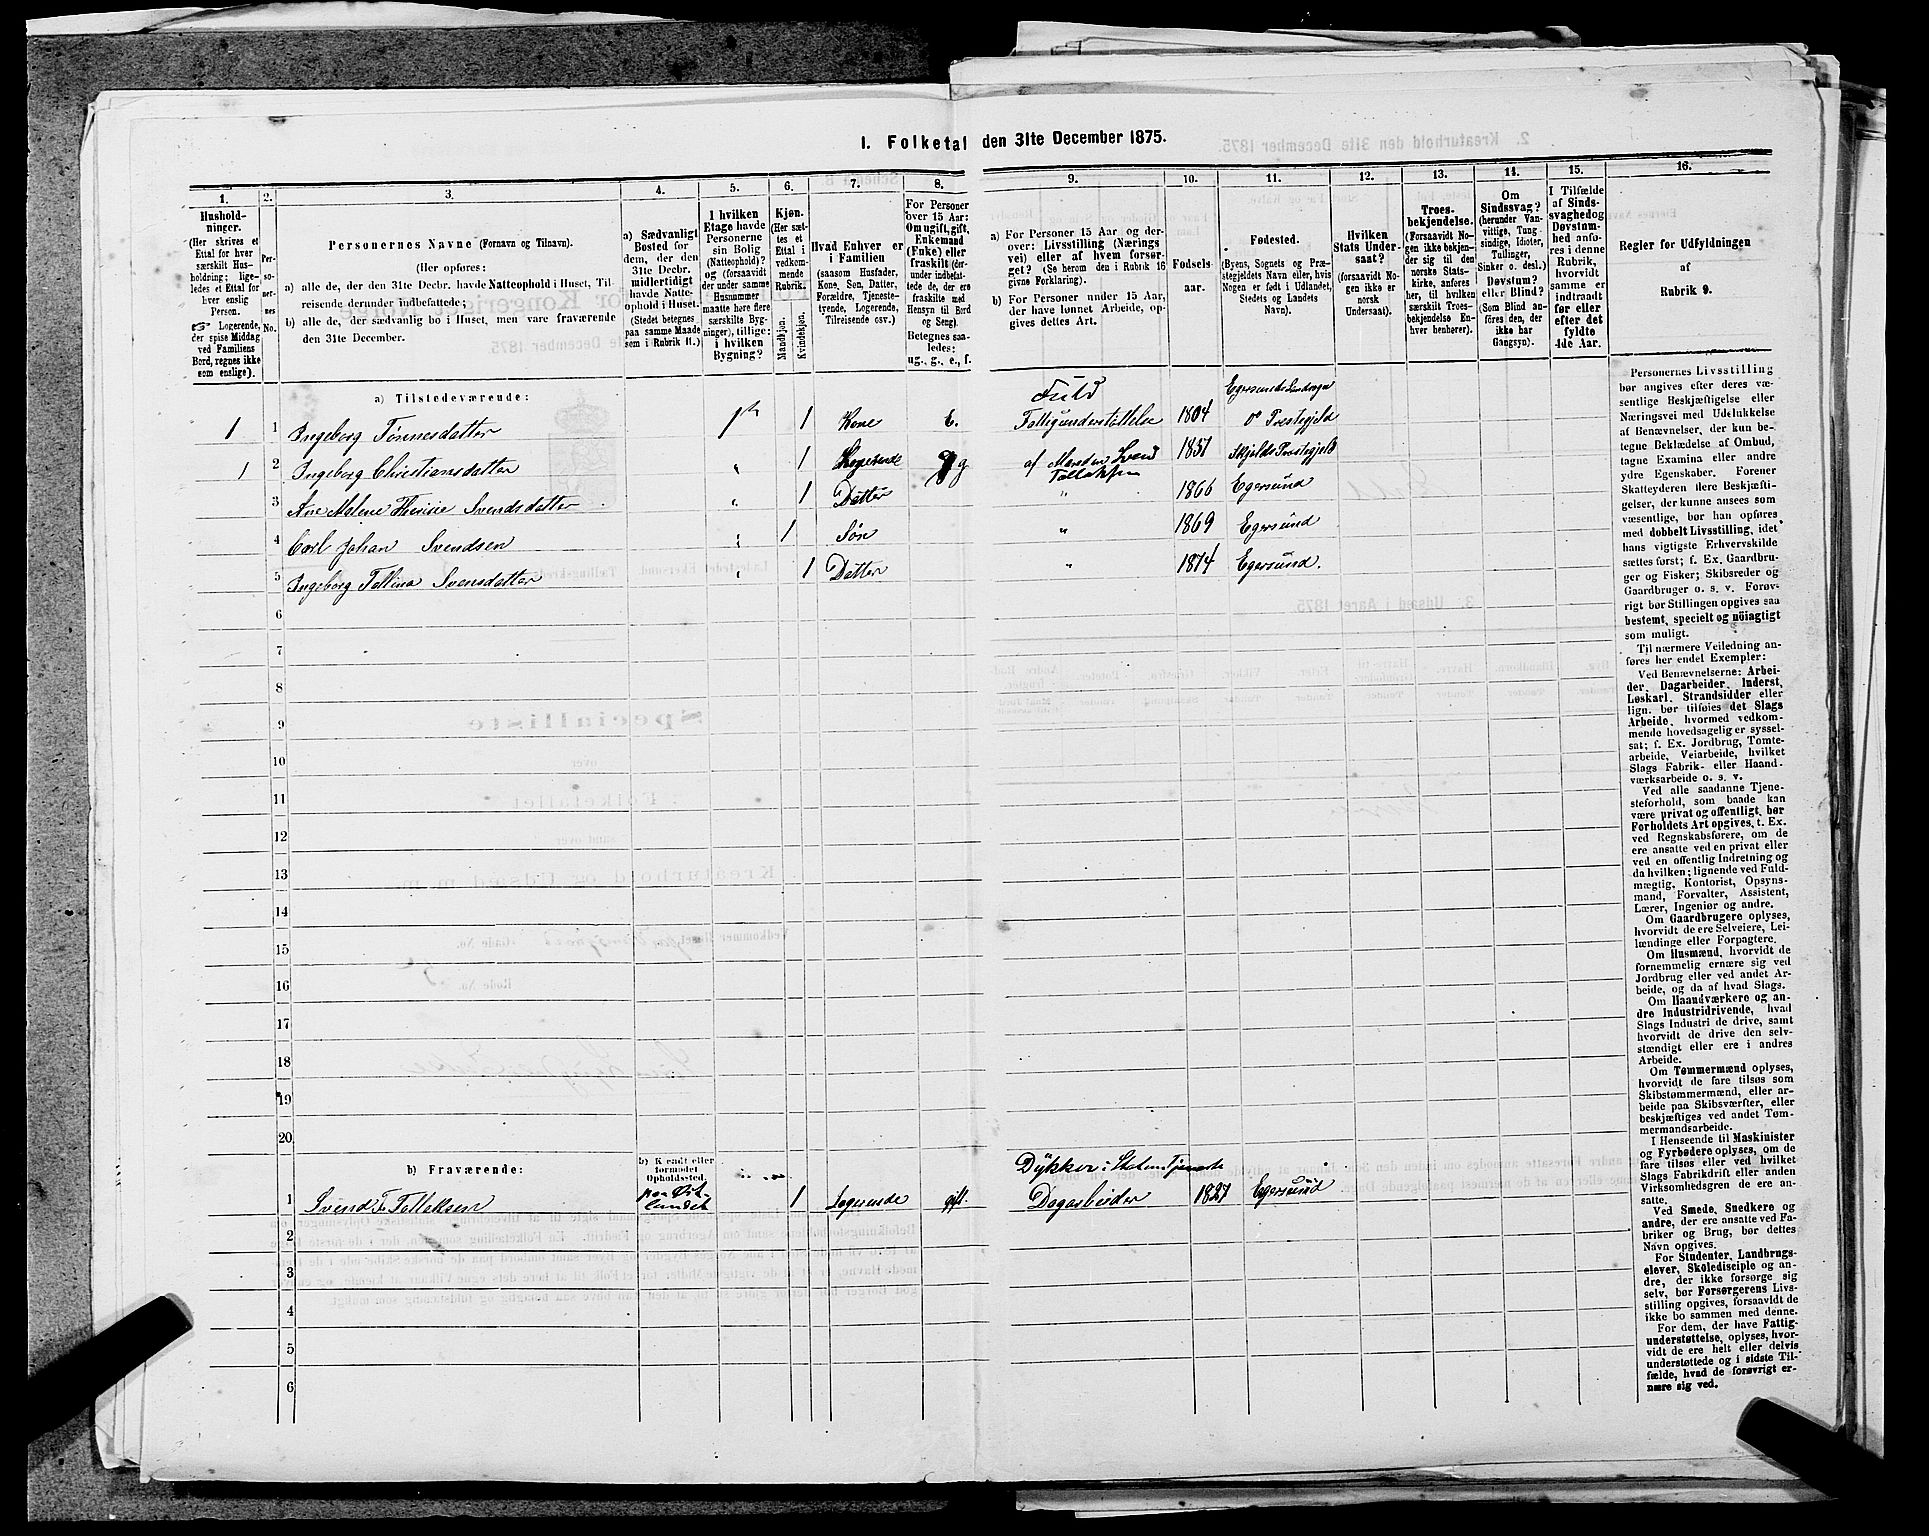 I. Folketal den 31te December 1875.
1.
2.
3.
4.
5.
6.
7.
8.
9.
10.
11.
12.
13.
14.
15.
16.
Hushold-
ninger.
(Her skrives et
Ettal for hver
særskilt Hus-
holdning; lige-
ledes et Ettal for
hver enslig
Person.
Logerende,
der spise Middag
ved Familiens
Bord, regnes ikke
som enslige).
Per-
so-
ner-
nes
No.
Personernes Navne (Fornavn og Tilnavn).
(Her opføres:
a) alle de, der den 31te Decbr. havde Natteophold i Huset, Til-
reisende derunder indbefattede;
b) alle de, der sædvanlig bo i Huset, men vare fraværende
den 31te December.
a) Sædvanligt
Bosted for
dem, der den
31te Decbr.
midlertidigt
havde Natte-
ophold i Huset.
(Stedet betegnes
paa samme Maade
som i Rubrik 11.)
I hvilken
Etage havde
Personerne
sin Bolig
(Natteophold)?
og (forsaavidt
der under samme
Husnummer
maatte høre flere
særskilte Byg-
ninger), tillige:
i hvilken
Bygning?
Kjøn.
(Her sæt-
tes et
Ettal i
vedkom-
mende
Rubrik.
Mandkjøn.
Kvindekjøn.
Hvad Enhver er
i Familien
(saasom Husfader,
Kone, Søn, Datter,
Forældre, Tjeneste-
tyende, Logerende,
Tilreisende osv.)
For Personer
over 15 Aar:
Om ugift, gift,
Enkemand
(Enke) eller
fraskilt (der-
under indbefat-
tede de, der ere
fraskilte med
Hensyn til Bord
og Seng).
Betegnes saa-
ledes:
ug., g., e., f.
a) For Personer 15 Aar og der-
over: Livsstilling (Nærings
vei) eller af hvem forsør-
get? (Se herom den i Rubrik 16
givne Forklaring).
b) For Personer under 15 Aar,
der have lønnet Arbeide, op-
gives dettes Art.
Fødsels-
aar.
Fødested.
(Byens, Sognets og Præ-
stegjeldets Navn eller, hvis
Nogen er født i Udlandet,
Stedets og Landets
Navn).
Hvilken
Stats Under-
saat?
(forsaavidt No-
gen ikke er
norsk
Undersaat).
Troes-
bekjendelse.
(Forsaavidt No-
gen ikke bekjen-
der sig til den
norske Stats-
kirke, anføres
her, til hvilken
særskilt Troes-
bekjendelse En-
hver henhører).
Om
Sindssvag?
(herunder Van-
vittige, Tung
sindige, Idioter,
Tullinger,
Sinker o. desl.)
Døvstum?
eller Blind?
(Som Blind an-
føres den, der
ikke har
Gangsyn).
I Tilfælde
af Sinds-
svaghed og
Døvstum-
hed anfø-
res i denne
Rubrik,
hvorvidt
samme er
indtraadt
før eller
efter det
fyldte
4de Aar.
Regler for Udfyldningen
af
Rubrik 9.
a) Tilstedeværende:
Fuld Egersunds Landsogn
1 1 Ingeborg Tønnesdatter 1 Kone E. Fattigunderstøttelse 1804 Præstegjeld
1 2 Ingeborg Christiansdatter " 1 Logerende g af Manden Svend Tallaksen 1837 Skjolds Præstegjeld
3 Ane Malene Svendsdatter " 1 Datter " 1866 Egersund
4 Carl Johan Svendsen " 1 Søn " 1869 Egersund
5 Ingeborg Tallina Svensdatter " 1 Datter " 1874 Egersund.
6
7
8
9
10
11
12
13
14
15
16
17
18
19
20
b) Fraværende:
b) Kendt eller
formodet
Opholdssted.
Dykker i Statens Tjeneste
1 Svend T. Tallaksen 1 Logerende gift. Dagarbeider 1827 Egersund
2
3
4
5
6
Personernes Livsstilling
bør angives efter deres væ-
sentlige Beskjæftigelse eller
Næringsvei med Udelukkelse
af Benævnelser, der kun be-
tegne Beklædelse af Ombud,
tagne Examina eller andre
ydre Egenskaber. Forener
Skatteyderen flere Beskjæfti-
gelser, der kunne ansees som
væsentlige, bør han opføres
med dobbelt Livsstilling, idet
hans vigtigste Erhvervskilde
sættes først; f. Ex. Gaardbru-
ger og Fisker; Skibsreder og
Gaardbruger o. s. v. Forøv-
rigt bør Stillingen opgives saa
bestemt, specielt og nöiagtigt
som muligt.
Til nærmere Veiledning an-
føres her endel Exempler:
Ved Benævnelserne: Arbei-
der, Dagarbeider, Inderst,
Løskarl, Strandsidder eller
lign. bør tilføies det Slags
Arbeide, hvormed vedkom-
mende hovedsagelig er syssel-
sat; f. Ex. Jordbrug, Tomte-
arbeide, Veiarbeide, hvilket
Slags Fabrik- eller Haand-
værksarbeide o. s. v.
Ved alle saadanne Tjene-
steforhold, som baade kan
være privat og offentligt, bør
Forholdets Art opgives, t. Ex.
ved Regnskabsførere, om de
ere ansatte ved en privat eller
ved en offentlig Indretning og
da hvilken; lignende ved Fuld-
mægtig, Kontorist, Opsyns-
mand, Forvalter, Assistent,
Lærer, Ingeniør og andre.
Om Gaardbrugere oplyses,
hvorvidt de ere Selveiere, Lei-
lændinge eller Forpagtere.
Om Husmænd, hvorvidt de
fornemmelig ernære sig ved
Jordbrug eller ved andet Ar-
beide, og da af hvad Slags.
Om Haandværkere og an-
dre Industridrivende, hvad
Slags Industri de drive, samt
hvorvidt de drive den selv-
stændigt eller ere i andres
Arbeide.
Om Tømmermænd oplyses,
hvorvidt de fare tilsøs som
Skibstømmermænd, eller ar-
beide paa Skibsværfter, eller
beskjæftiges ved andet Tøm-
mermandsarbeide.
I Henseende til Maskinister
og Fyrbødere oplyses, om de
fare tilsøs eller ved hvilket
Slags Fabrikdrift eller anden
Virksomhedsgren de ere an-
satte.
Ved Smede, Snedkere og
andre, der ere ansatte ved Fa-
briker og Brug, bør dettes
Navn opgives.
For Studenter, Landbrugs-
elever, Skoledisciple og an-
dre, der ikke forsørge sig
selv, bør Forsørgerens Livs-
stilling opgives, forsaavidt de
ikke bo sammen med denne.
For dem, der have Fattig-
understøttelse, oplyses, hvor-
vidt de ere helt eller delvis
understøttede og i sidste Til-
fælde, hvad de forøvrigt er-
nære sig ved.